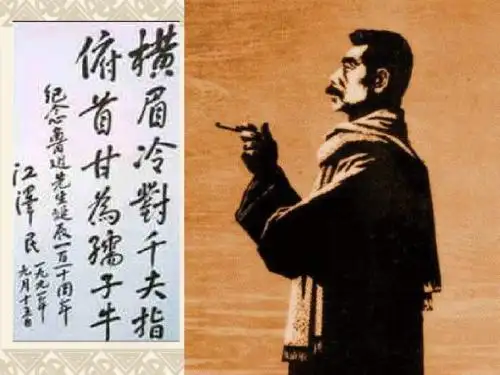 横眉冷對千夫指
俯首甘為孺子牛
紀念魯迅先生誕辰一百一十周年
江澤民
一九九一年
九月十五日